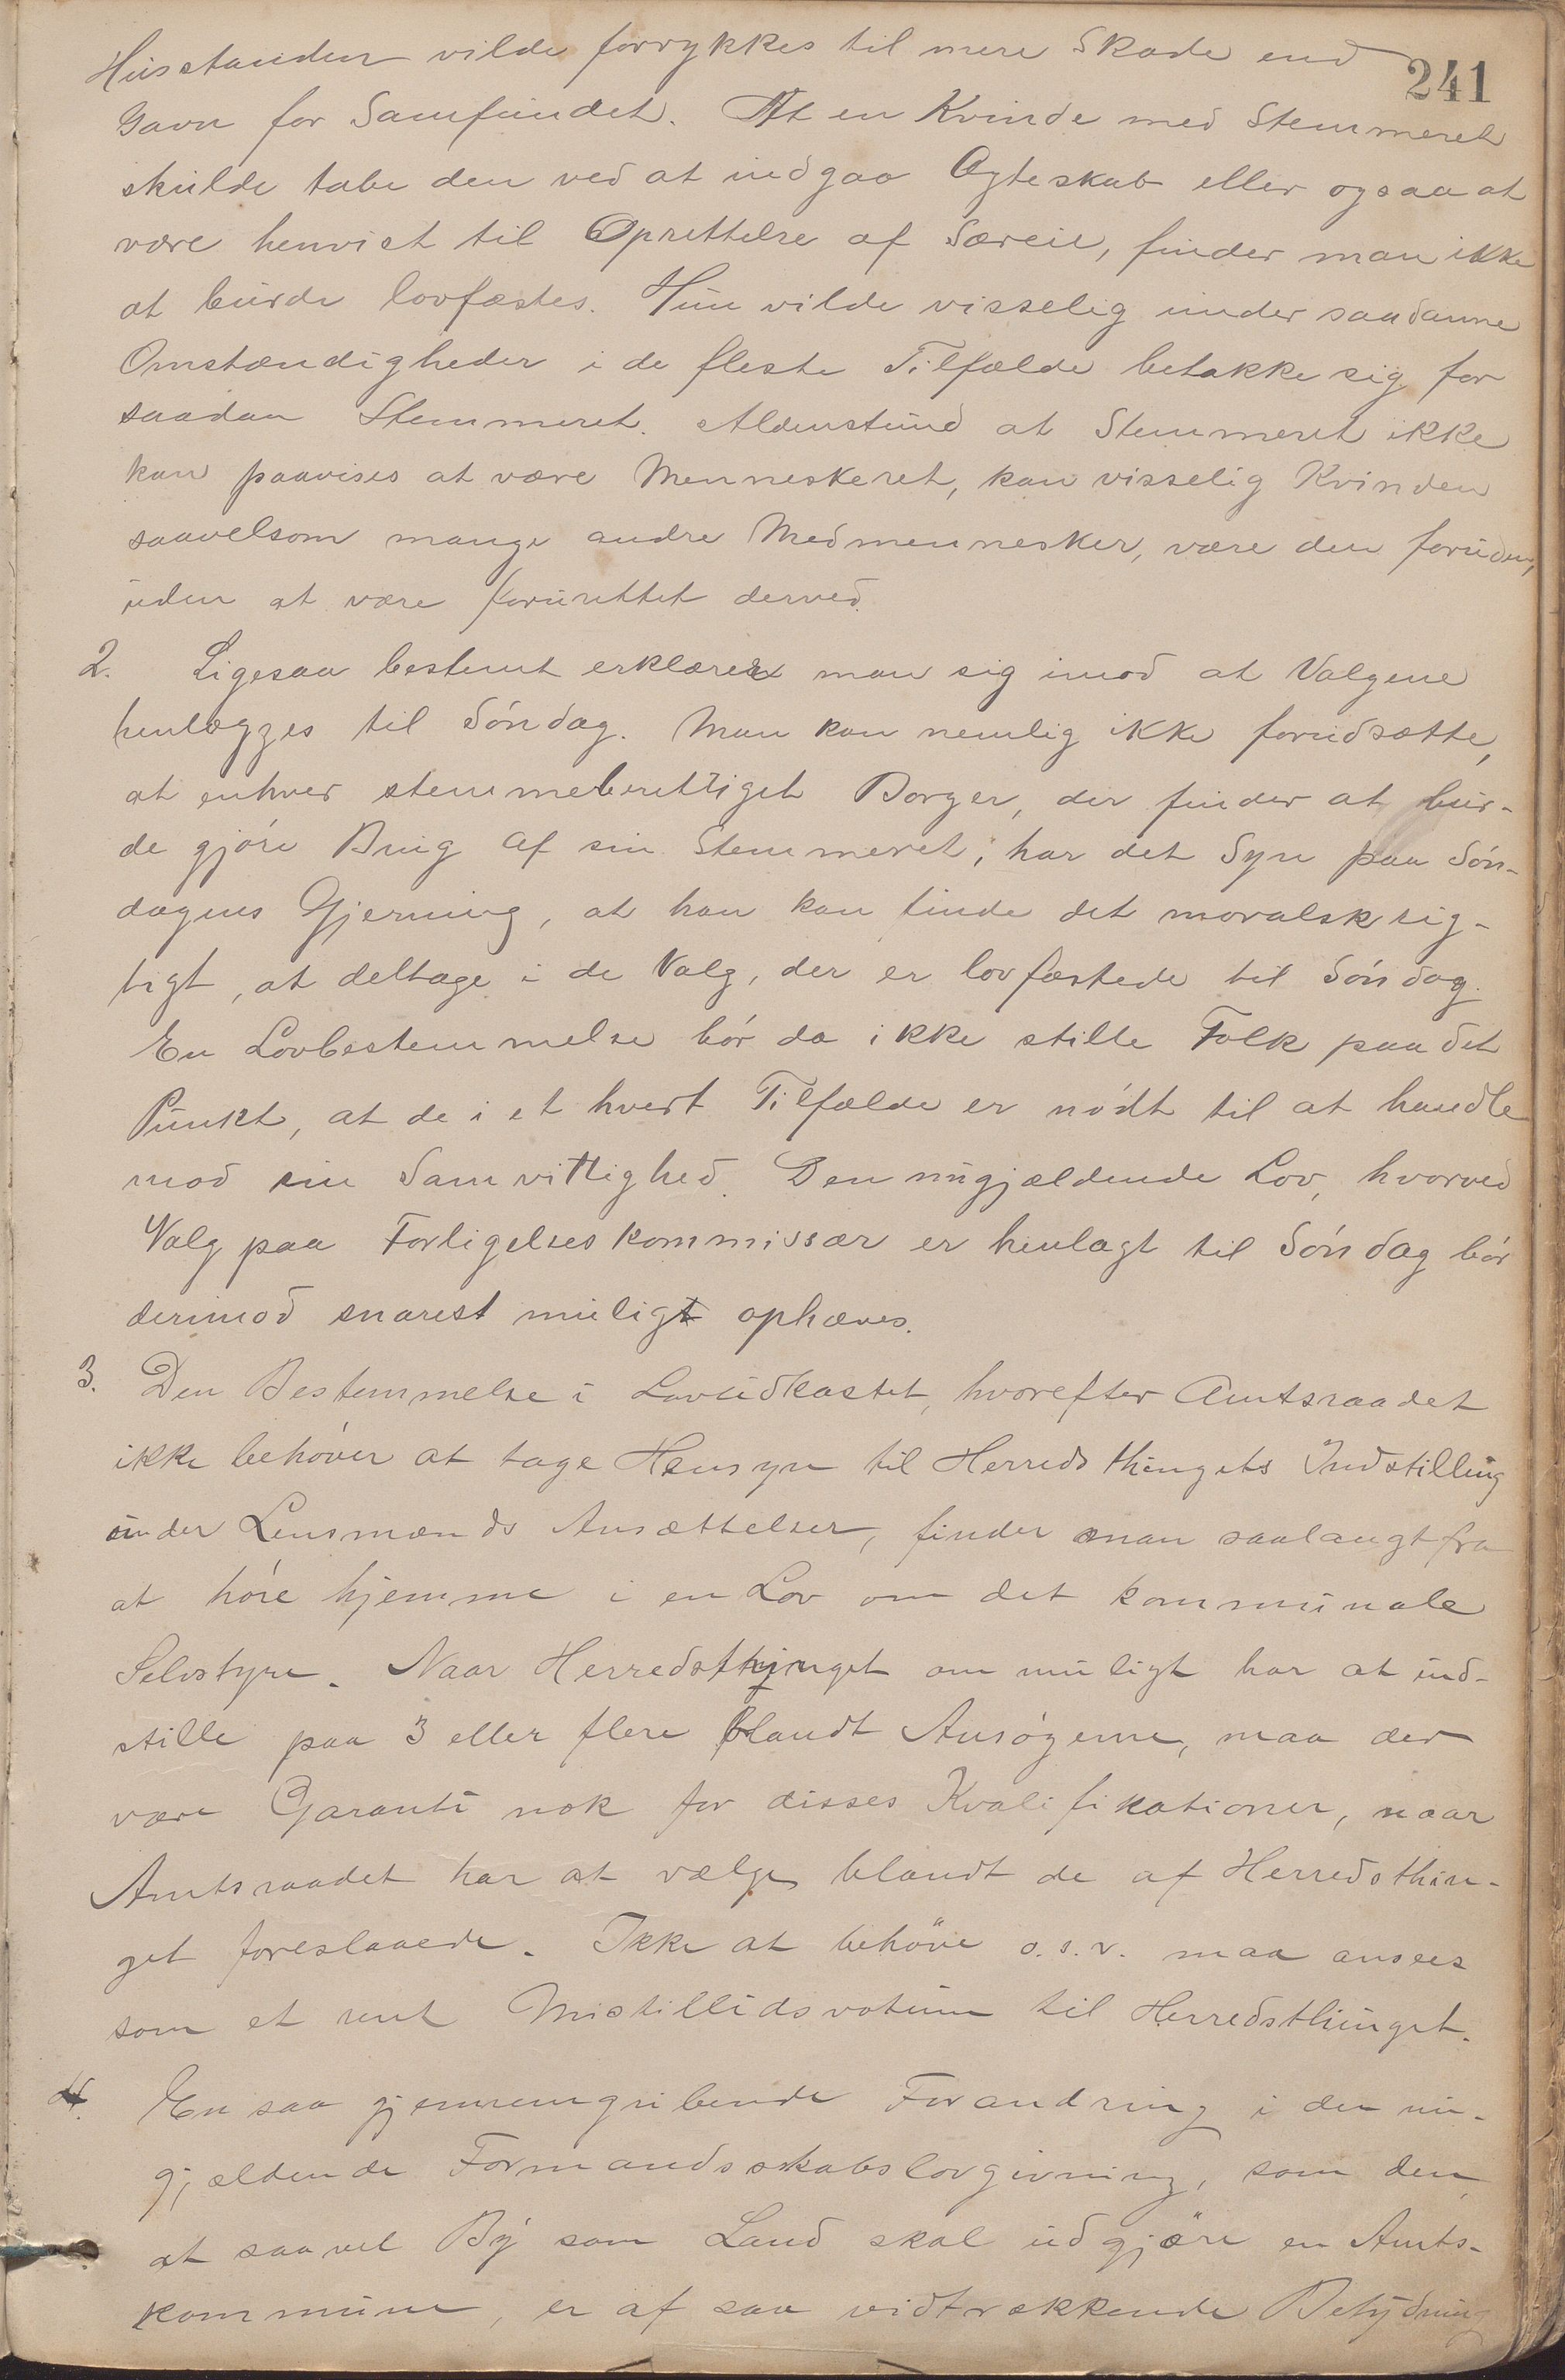 241
Husstanden vilde forrykkes til mere Skade end
Gavn for Samfundet. At en Kvinde med Stemmeret
skulde tabe den ved at indgaa Ægteskab eller ogsaa at
være henvist til Oprettelse af Særeie, finder man ikke
at burde lovfæstes. Hun vilde visselig under saadanne
Omstændigheder i de fleste Tilfælde betakke sig for
saadan Stemmeret. Aldenstund at Stemmeret ikke
kan paavises at være Menneskeret, kan visselig Kvinden
saavelsom mange andre Medmennesker, være den foruden,
uden at være forurettet derved.
2. Ligesaa bestemt erklærer man sig imod at Valgene
henlægges til Söndag. Man kan nemlig ikke forudsætte,
at enhver stemmeberettiget Borger, der finder at bur-
de gjöre Brug af sin Stemmeret, har det Syn paa Sön-
dagens Gjerning, at han kan finde det moralsk rig-
tigt, at deltage i de Valg, der er lovfæstede til Söndag.
En Lovbestemmelse bör da ikke stille Folk paa det
Punkt, at de i et hvert Tilfælde er nödt til at handle
mod sin Samvittighed. Den nugjældende Lov, hvorved
Valg paa Forligelseskommissær er henlagt til Söndag bör
derimod snarest muligt ophæves.
3. Den Bestemmelse i Lovudkastet, hvorefter Amtsraadet
ikke behöver at tage Hensyn til Herredsthingets Indstilling
under Lensmænds Ansættelser, finder man saalangt fra
at höre hjemme i en Lov om det kommunale
Selvstyre. Naar Herredsthinget om muligt har at ind-
stille paa 3 eller flere blandt Ansögerne, maa der
være Garanti nok for disses Kvalifikationer, naar
Amtsraadet har at vælge blandt de af Herredsthin-
get foreslaaede. Ikke at behöve o.s.v. maa ansees
som et rent Mistillidsvotum til Herredsthinget.
4. En saa gjennemgribende Forandring i den nu-
gjældende Formandsskabslovgivning, som den,
at saavel By som Land skal udgjöre en Amts-
kommune, er af saa vidtrækkende Betydning